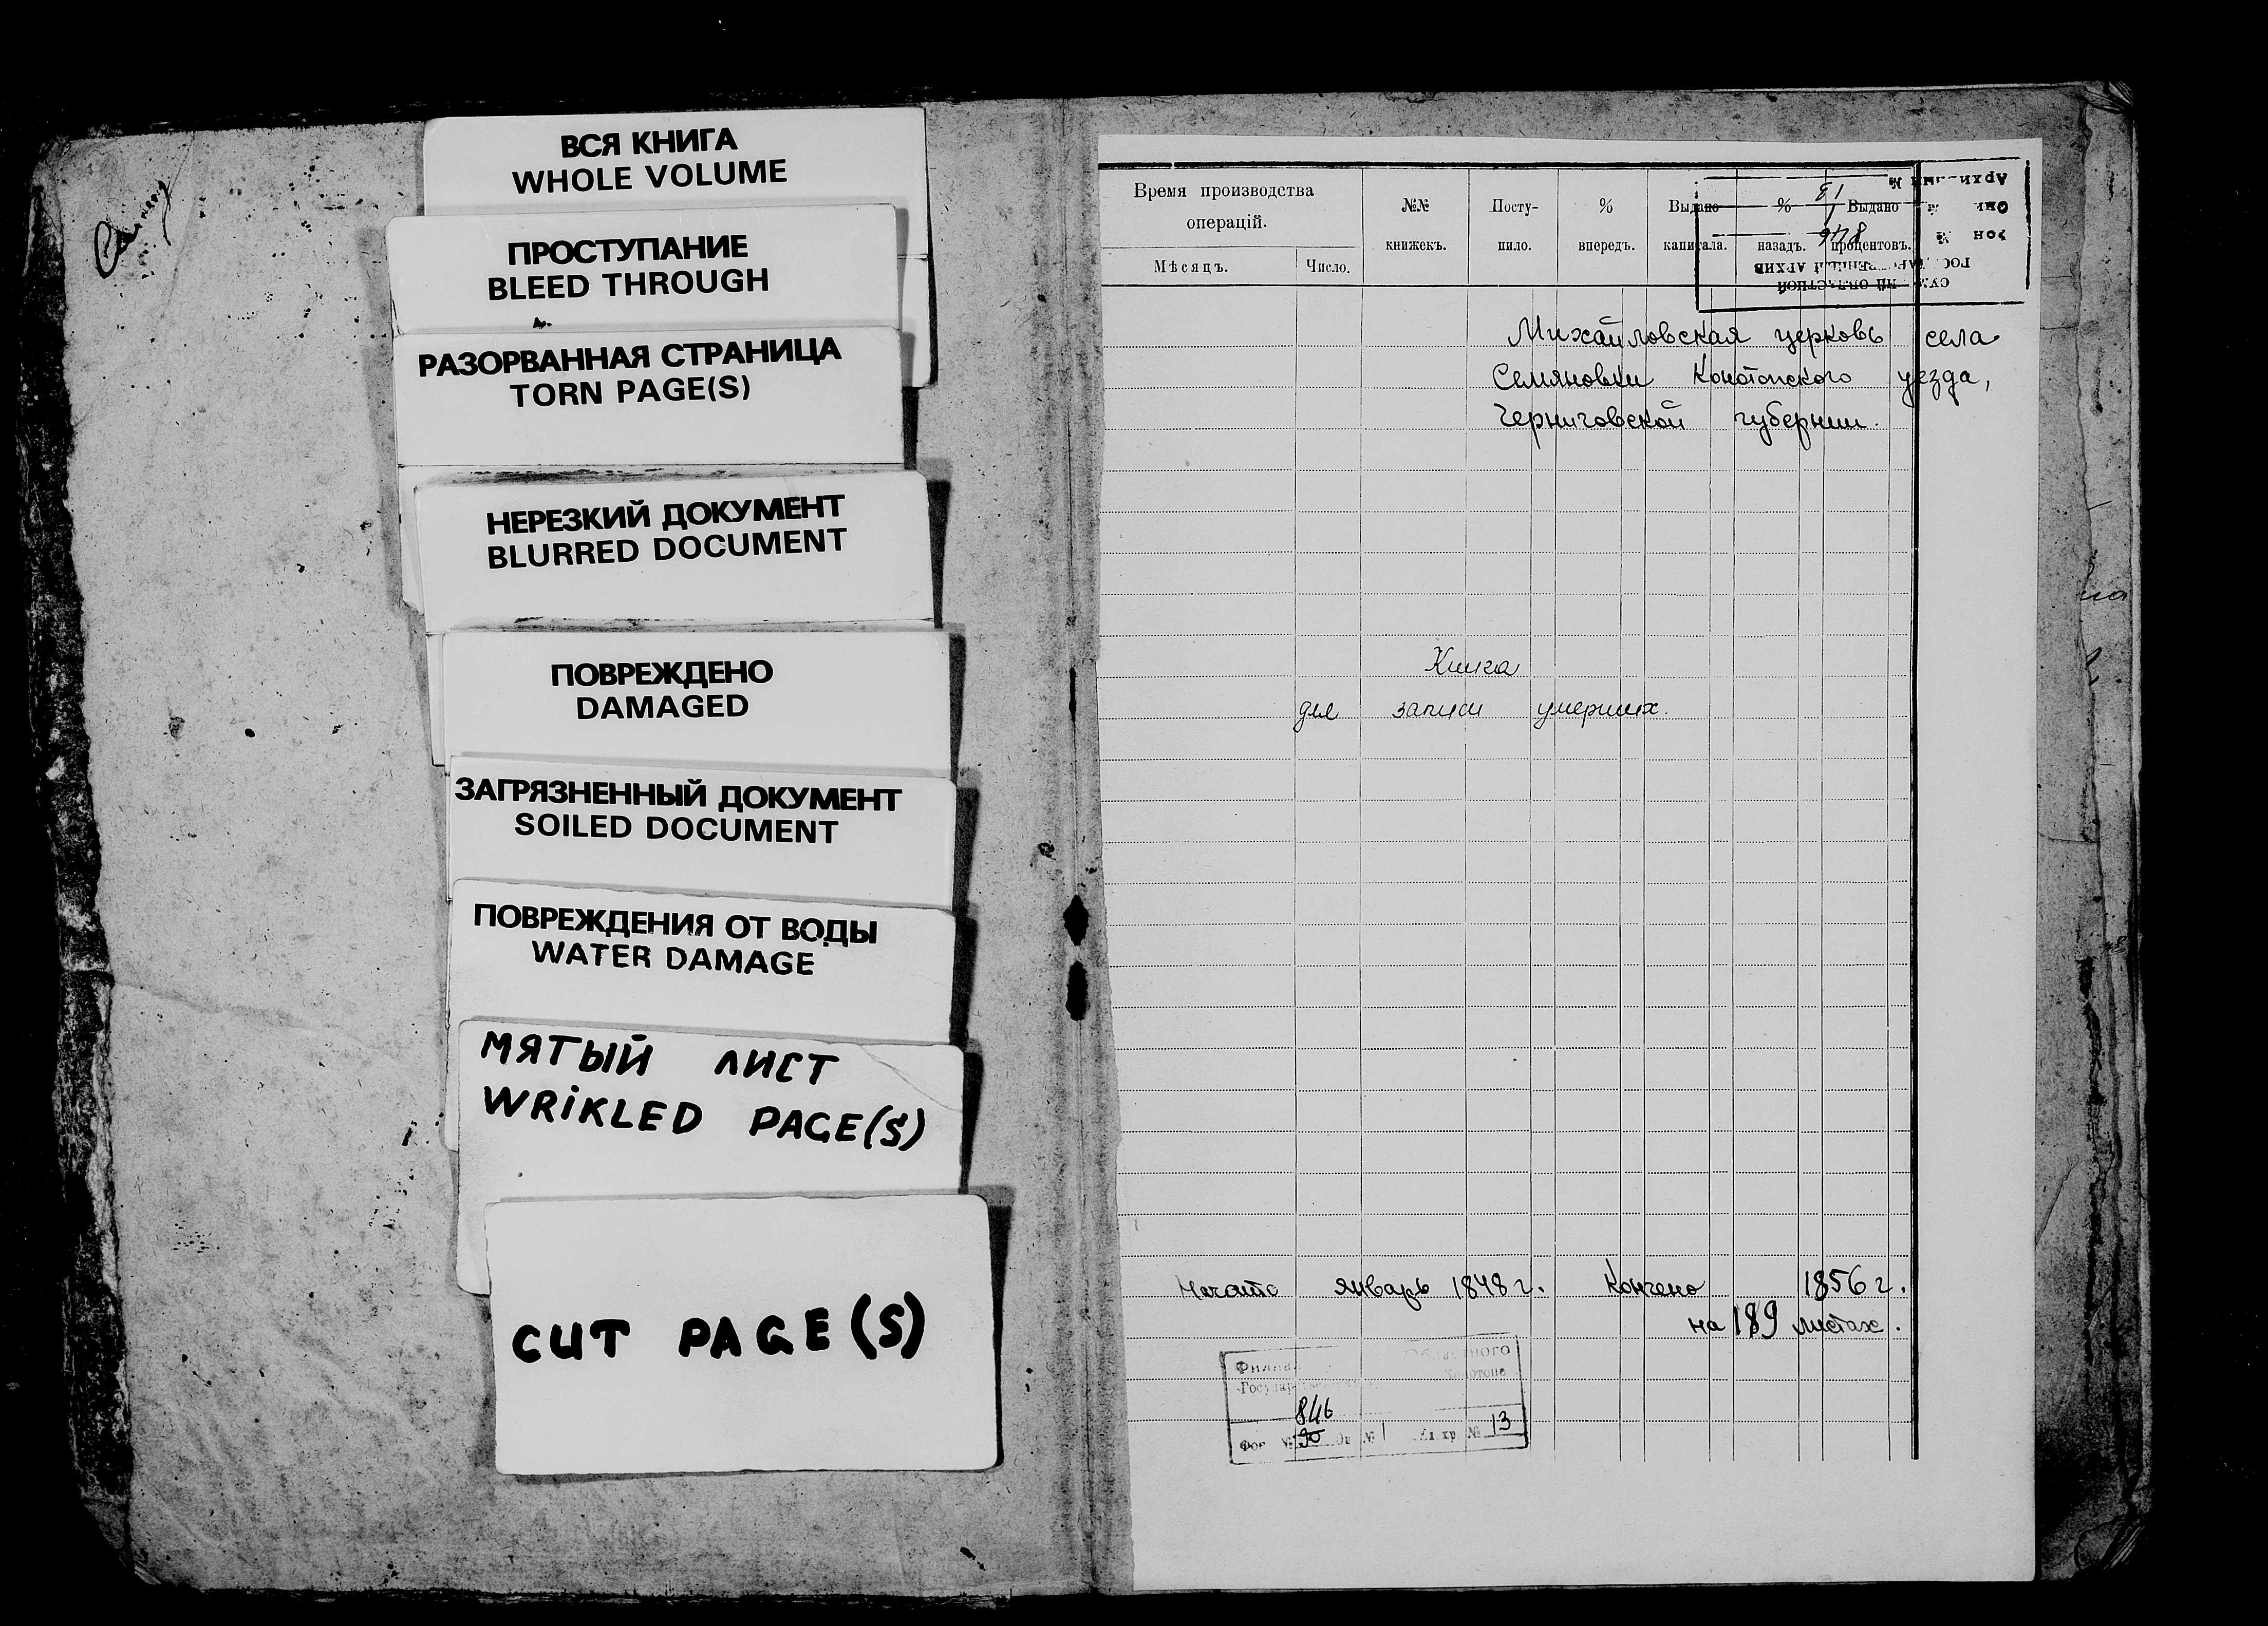 ВСЯ КНИГА
WHOLE VOLUME
ПРОСТУПАНИЕ
BLEED THROUGH
РАЗОРВАННАЯ СТРАНИЦА
TORN PAGE(S)
НЕРЕЗКИЙ ДОКУМЕНТ
BLURRED DOCUMENT
ПОВРЕЖДЕНО
DAMAGED
ЗАГРЯЗНЕННЫЙ ДОКУМЕНТ
SOILED DOCUMENT
ПОВРЕЖДЕНИЯ ОТ ВОДЫ
WATER DAMAGE
МЯТЫЙ ЛИСТ
WRiKLED PAGE(S)
CUT PAGE(S)
Время производства операцій.
Мѣсяцъ.
Число.
№№ книжекъ.
Посту-
пило.
% впередъ.
Выдано капитала.
% назадъ.
Выдано процентовъ.
Михайловская церковь села
Семяновки Конотопского уезда,
Черниговской губернии.
Книга
для записи умерших.
Начато январь 1848 г. Кончено 1856 г.
на 189 листах.
846
90
№ 1
хр. № 13